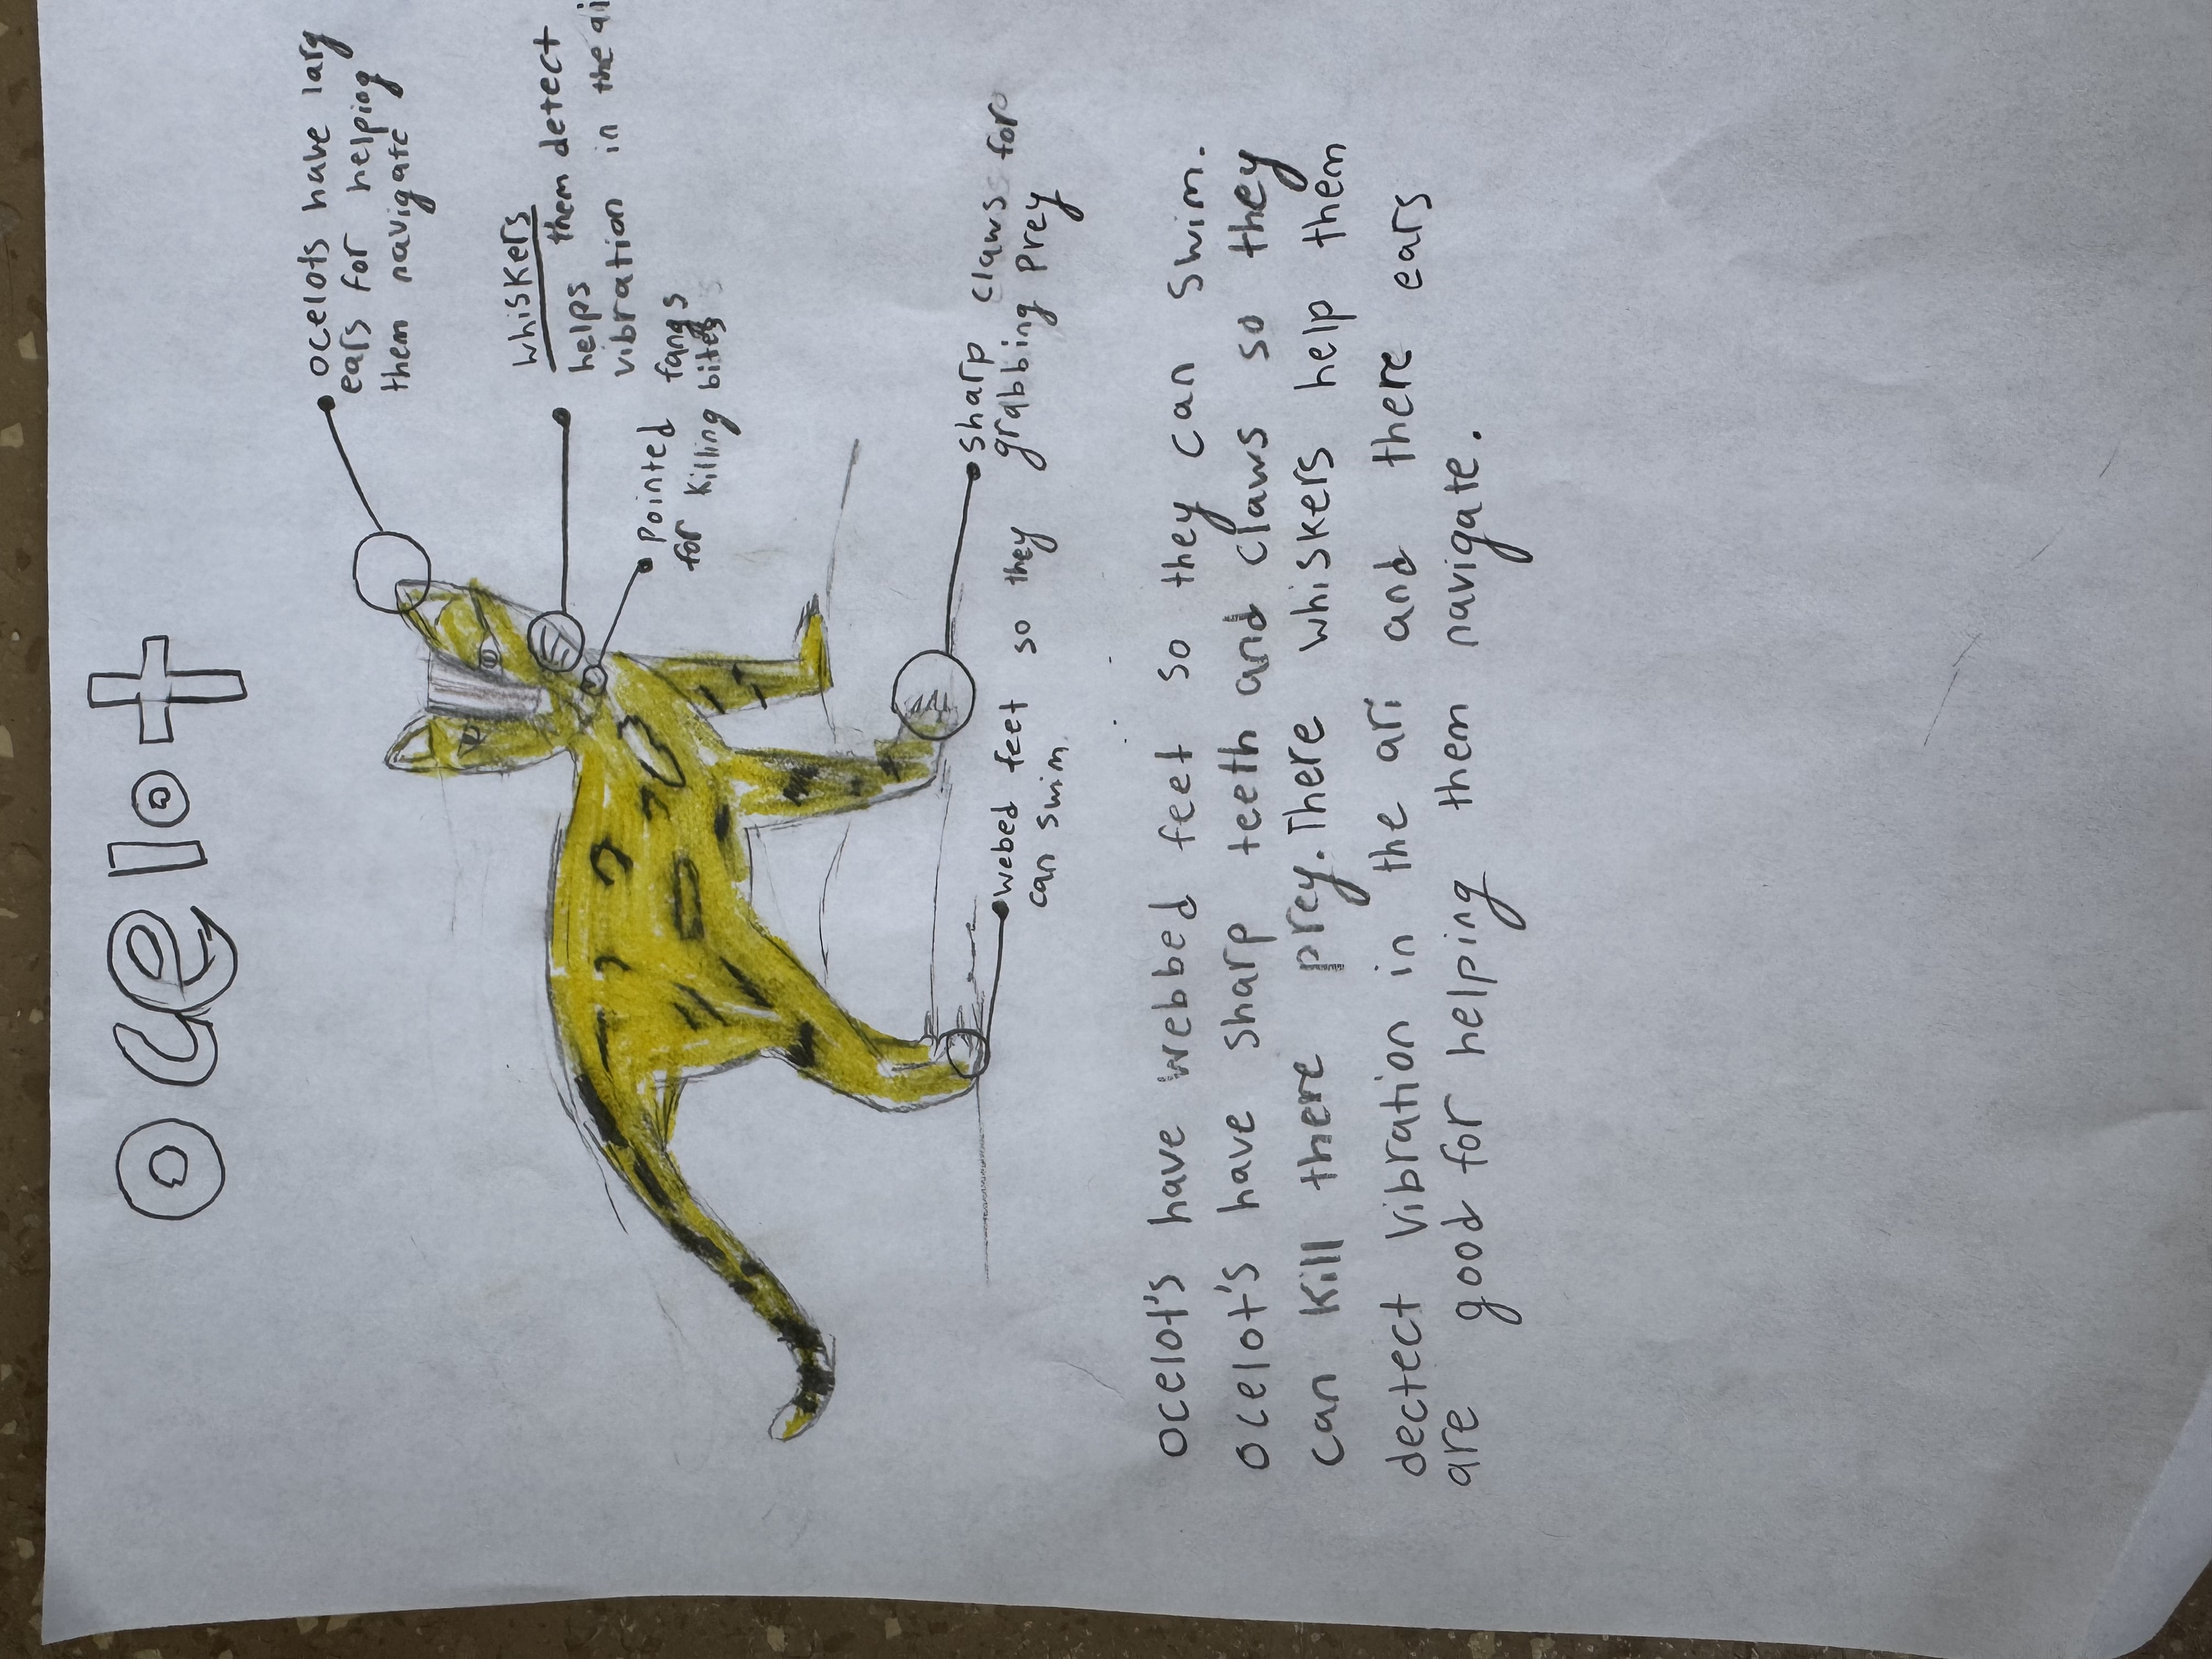 ocelot
ocelots have larg
ears for helping
them navigate
whiskers
helps them detect
vibration in the
pointed fangs
for killing bites
sharp claws for
grabbing prey
webed feet so they
can swim
ocelot's have webbed feet so they can swim.
ocelot's have sharp teeth and claws so they
can kill there prey. There whiskers help them
dectect vibration in the ari and there ears
are good for helping them navigate.